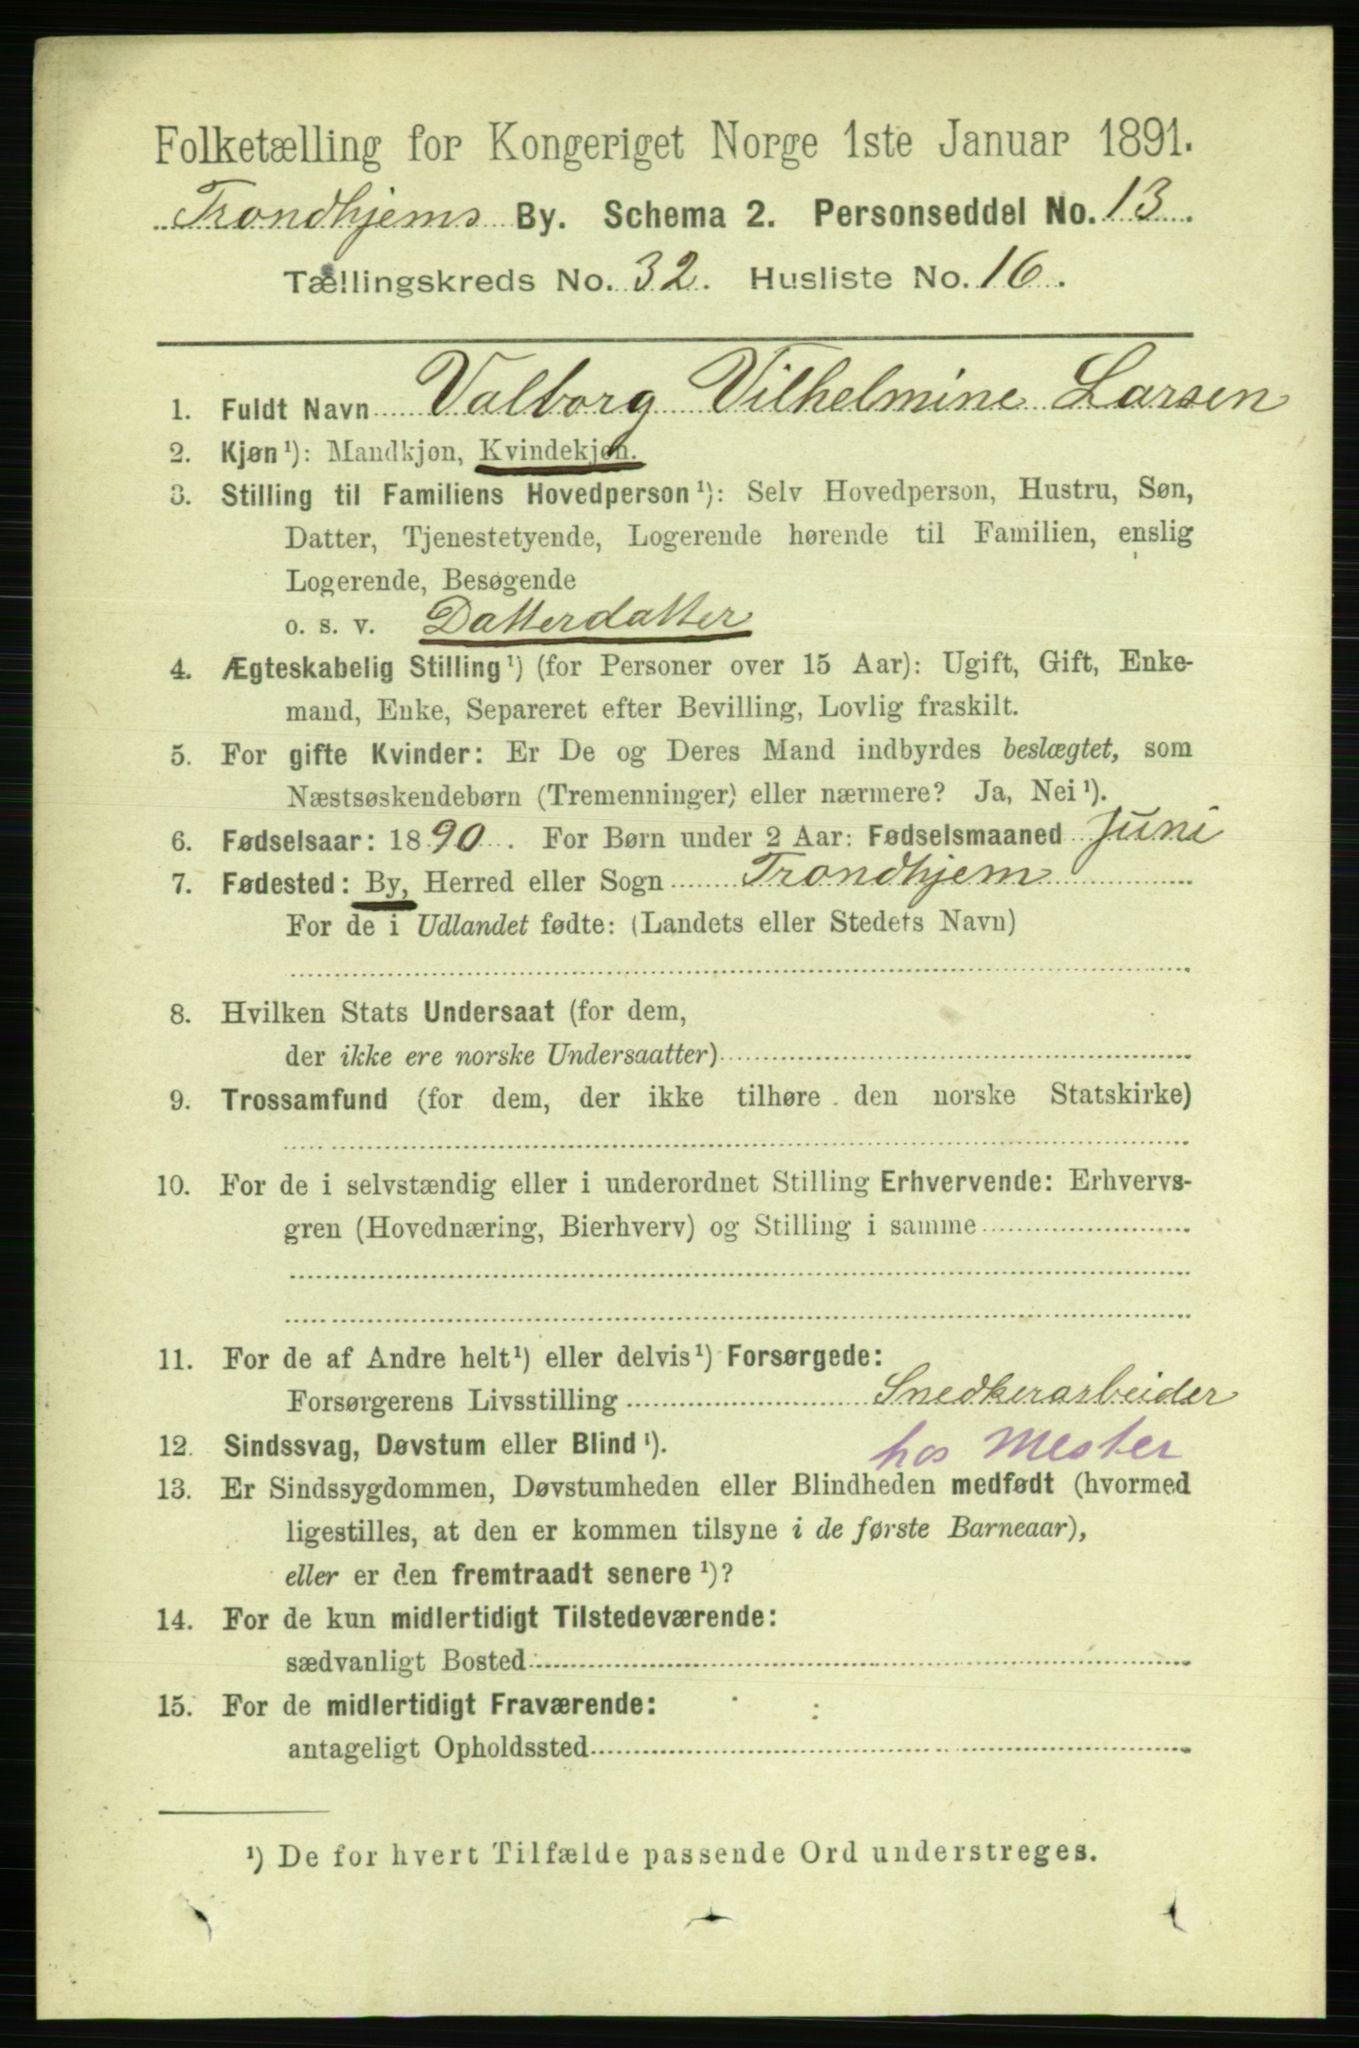 Folketælling for Kongeriget Norge 1ste Januar 1891.
Trondhjems By. Schema 2. Personseddel No. 13.
Tællingskreds No. 32. Husliste No. 16.
1. Fuldt Navn Valborg Vilhelmine Larsen
2. Kjøn¹): Mandkjøn, Kvindekjøn.
3. Stilling til Familiens Hovedperson¹): Selv Hovedperson, Hustru, Søn,
Datter, Tjenestetyende, Logerende hørende til Familien, enslig
Logerende, Besøgende
o. s. v. Datterdatter
4. Ægteskabelig Stilling¹) (for Personer over 15 Aar): Ugift, Gift, Enke-
mand, Enke, Separeret efter Bevilling, Lovlig fraskilt.
5. For gifte Kvinder: Er De og Deres Mand indbyrdes beslægtet, som
Næstsøskendebørn (Tremenninger) eller nærmere? Ja, Nei¹).
6. Fødselsaar: 1890. For Børn under 2 Aar: Fødselsmaaned Juni
7. Fødested: By, Herred eller Sogn Trondhjem
For de i Udlandet fødte: (Landets eller Stedets Navn)
8. Hvilken Stats Undersaat (for dem,
der ikke ere norske Undersaatter)
9. Trossamfund (for dem, der ikke tilhøre den norske Statskirke)
10. For de i selvstændig eller i underordnet Stilling Erhvervende: Erhvervs-
gren (Hovednæring, Bierhverv) og Stilling i samme
11. For de af Andre helt¹) eller delvis¹) Forsørgede:
Forsørgerens Livsstilling Snedkerarbeider
12. Sindssvag, Døvstum eller Blind¹). hos Mester
13. Er Sindssygdommen, Døvstumheden eller Blindheden medfødt (hvormed
ligestilles, at den er kommen tilsyne i de første Barneaar),
eller er den fremtraadt senere¹)?
14. For de kun midlertidigt Tilstedeværende:
sædvanligt Bosted
15. For de midlertidigt Fraværende:
antageligt Opholdssted
¹) De for hvert Tilfælde passende Ord understreges.